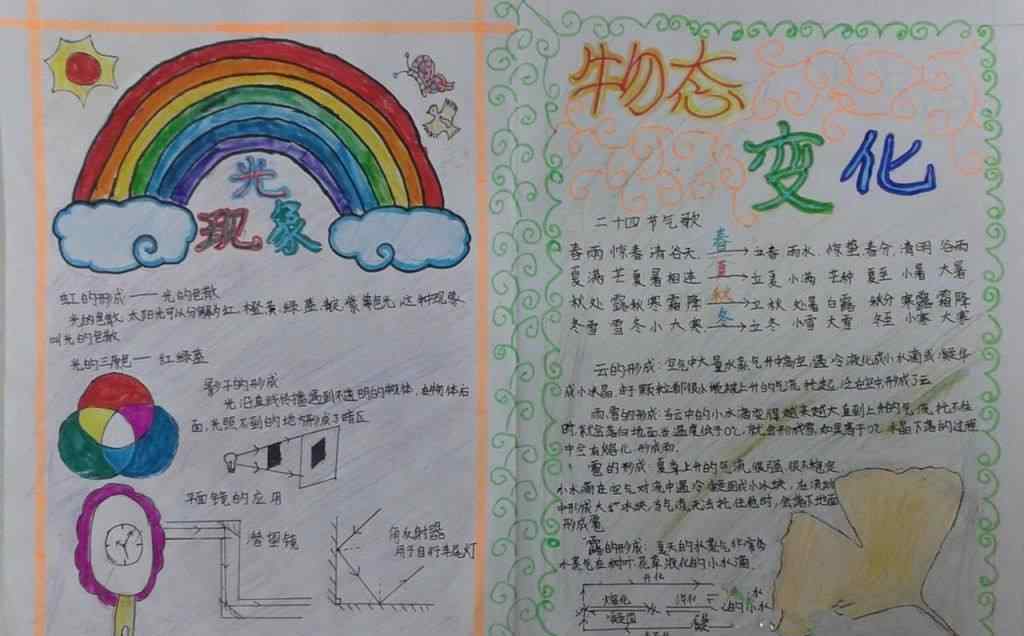 光
现象
虹的形成——光的色散
光的色散:太阳光可以分解为红、橙、黄、绿、蓝、靛、紫色光,这种现象
叫光的色散
光的三原色——红绿蓝
影子的形成
光沿直线传播遇到不透明的物体,在物体后
面,光照不到的地方形成了暗区
平面镜的应用
潜望镜
角反射器
用于自行车尾灯
物态
变化
二十四节气歌
春雨惊春清谷天 春 立春 雨水 惊蛰 春分 清明 谷雨
夏满芒夏暑相连 夏 立夏 小满 芒种 夏至 小暑 大暑
秋处露秋寒霜降 秋 立秋 处暑 白露 秋分 寒露 霜降
冬雪雪冬小大寒 冬 立冬 小雪 大雪 冬至 小寒 大寒
云的形成:空气中大量水蒸气升中高空,遇冷液化成小水滴或凝华
成小水晶,由于颗粒都很小 被上升的气流托起,这在空中形成了云
雨、雪的形成:当云中的小水滴变得越来越大直到上升的气流托不住
时,就会落向地面 温度低于0℃,就会形成雪,如果高于0℃冰晶下落的过程
中会有熔化 形成
雹的形成:夏季上升的气流很强 很不稳定
小水滴在空气对流中遇冷凝固成小冰块,在流动
中形成大 冰块,当气流无法托住它时,会落下地面
形成雹
露的形成:夏天的水蒸气非常多
水蒸气在树叶、花草液化的小水滴
升化
熔化
凝固
的小水